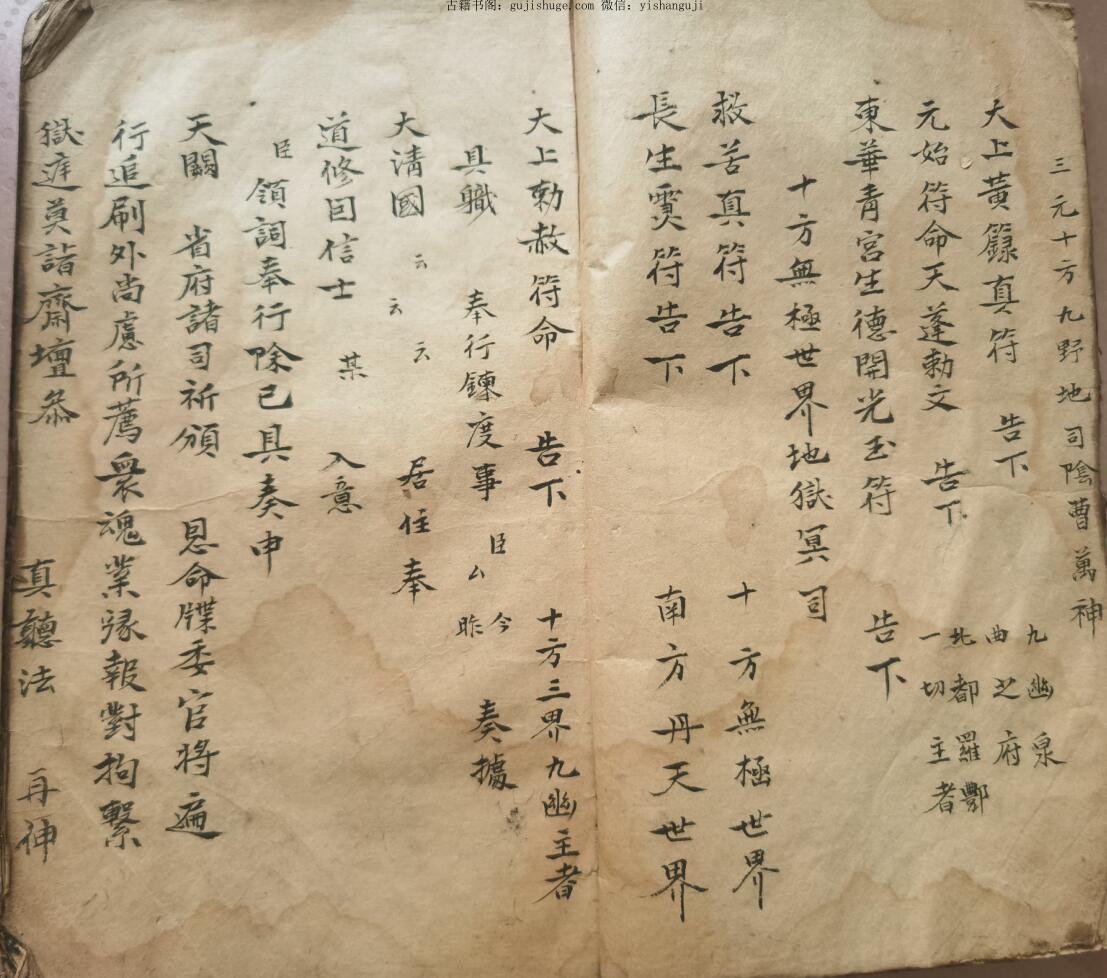 古籍书阁：gujishuge.com 微信：yishanguji
三元十方九野地司隂曹萬神
大上黃籙真符 告下 九幽泉
曲之府
元始符命天蓬勅文 告下 北都羅酆
一切主者
東華青宮生德開光玉符 告下
十方無極世界地獄冥司
救苦真符告下 十方無極世界
長生符告下 南方丹天世界
大上勅赦符命 告下 十方三界九幽主者
具職 奉行鍊度事 臣厶 今昨 奏據
大清國 云云云 居住奉
道修因信士 某 入意
臣領詞奉行除已具奏申
天闕 省府諸司祈頒 恩命牒委官將遍
行追刷外尚慮所薦衆魂業緣報對拘繫
獄庭莫詣齋壇叅 真聽法 再伸